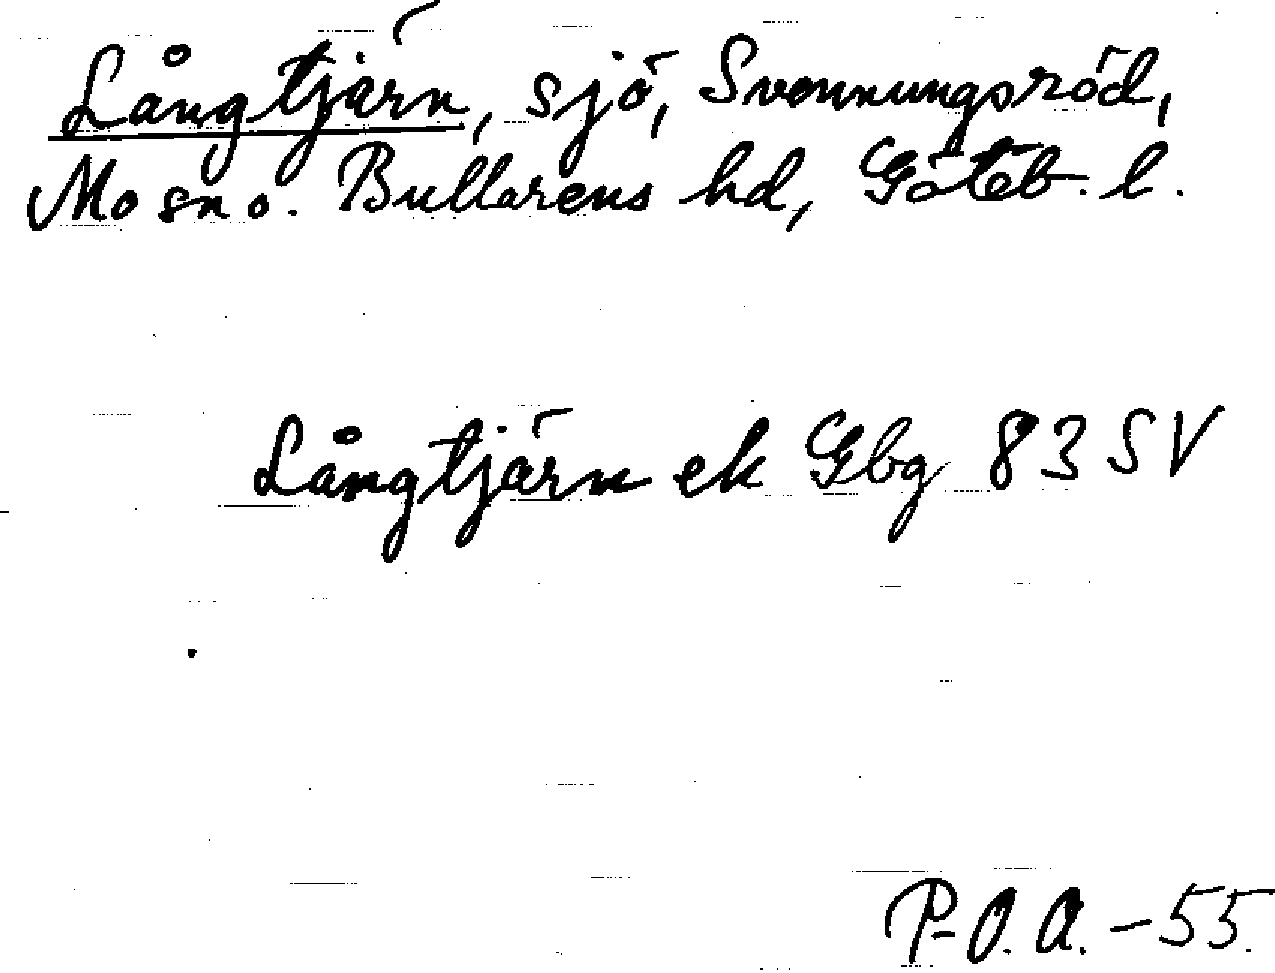 Långtjärn, sjö, Svennungsröd,
Mo sn o. Bullarens hd, Göteb. l.
Långtjärn ek Gbg 83 SV
P-O. A. - 55.